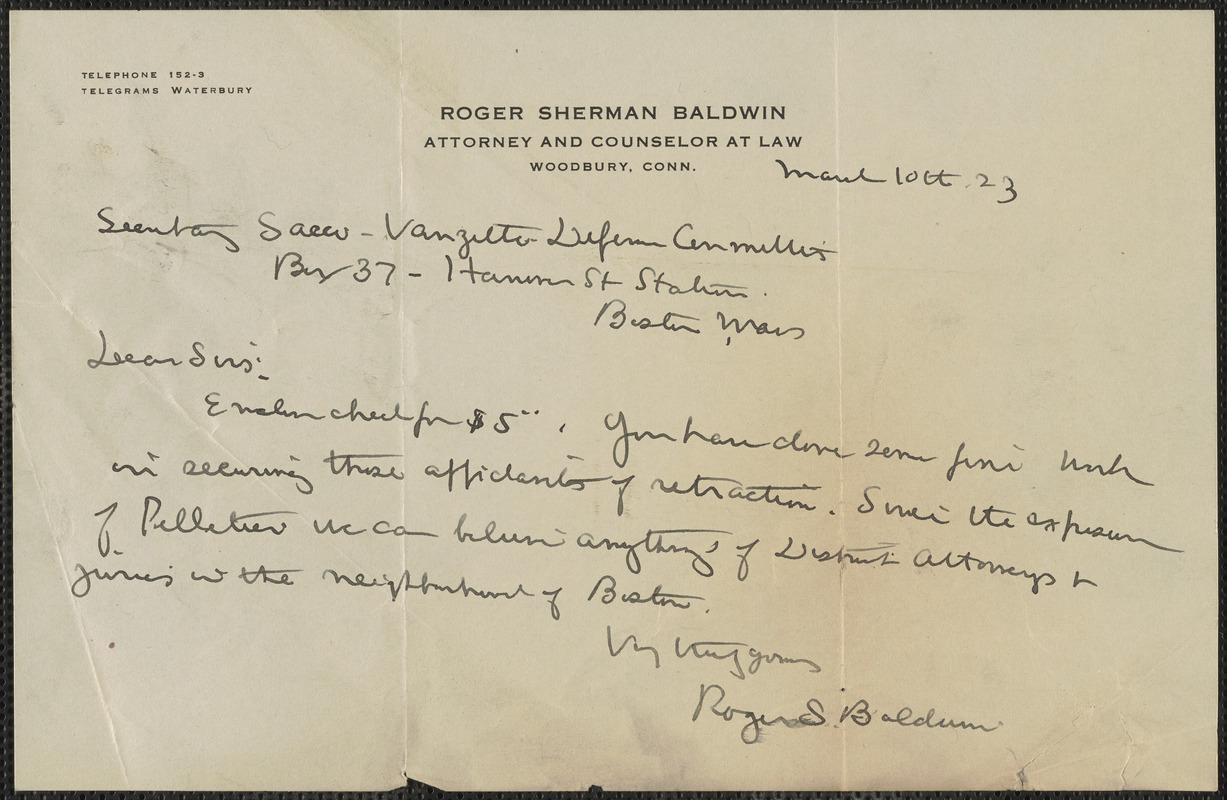 TELEPHONE 152-3
TELEGRAMS WATERBURY
ROGER SHERMAN BALDWIN
ATTORNEY AND COUNSELOR AT LAW
WOODBURY, CONN.
March 10th 23
Secretary Sacco-Vanzetti Defense Committee
Box 37 - Hanover St Station.
Boston, Mass
Dear Sirs:
Enclose check for $5.. . You have done some fine work
in securing those affidavits of retraction. Since the exposure
of Pelletier we can believe anything of District Attorneys &
juries in the neighborhood of Boston.
Very truly yours
Roger S. Baldwin